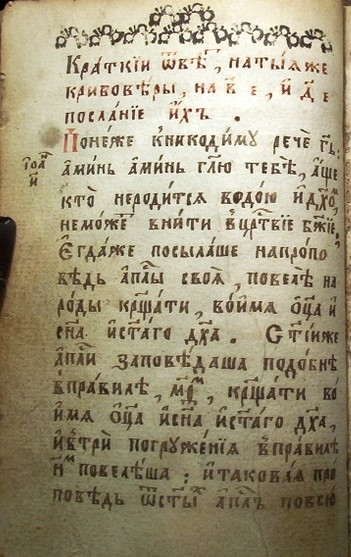 Кра́ткїи ѿвѣ́т, на ты́яже
кривовѣ́ры, на в҃ е, и҆ д҃ е
посла́нїе и҆́хъ .
Поне́же к̾никоди́му рече́ гдⷭ҇ь,
а҆ми́нь а҆ми́нь гл҃ю тебѣ̀, а҆́ще
кто̀ неро́дится водо́ю и҆ дх҃омъ,
немо́жетъ вни́ти в̾црⷭ҇твїе бж҃їе,
Є҆гда́же посыла́ше напро́по
вѣдь а҆пⷭ҇лы своѧ̀, повелѣ̀ на
ро́ды крⷭ҇ща́ти, во и҆́мя о҆ц҃а и҆
сн҃а и҆ ст҃а́гѡ дх҃а . Ст҃і́иже
а҆пⷭ҇ли заповѣ́даша подо́бнѣ
в̾пра́вилѣ, м҃ѳ, крⷭ҇ща́ти во
и҆́мя о҆ц҃а и҆ сн҃а и҆ ст҃а́гѡ дх҃а,
и҆ в̾трѝ погруже́нїя в̾пра́вилѣ
н҃ повелѣ́ша ; и҆ такова́я про
повѣдь ѿ ст҃ы́хъ а҆пⷭ҇лъ повсю
їѡа҃
г҃